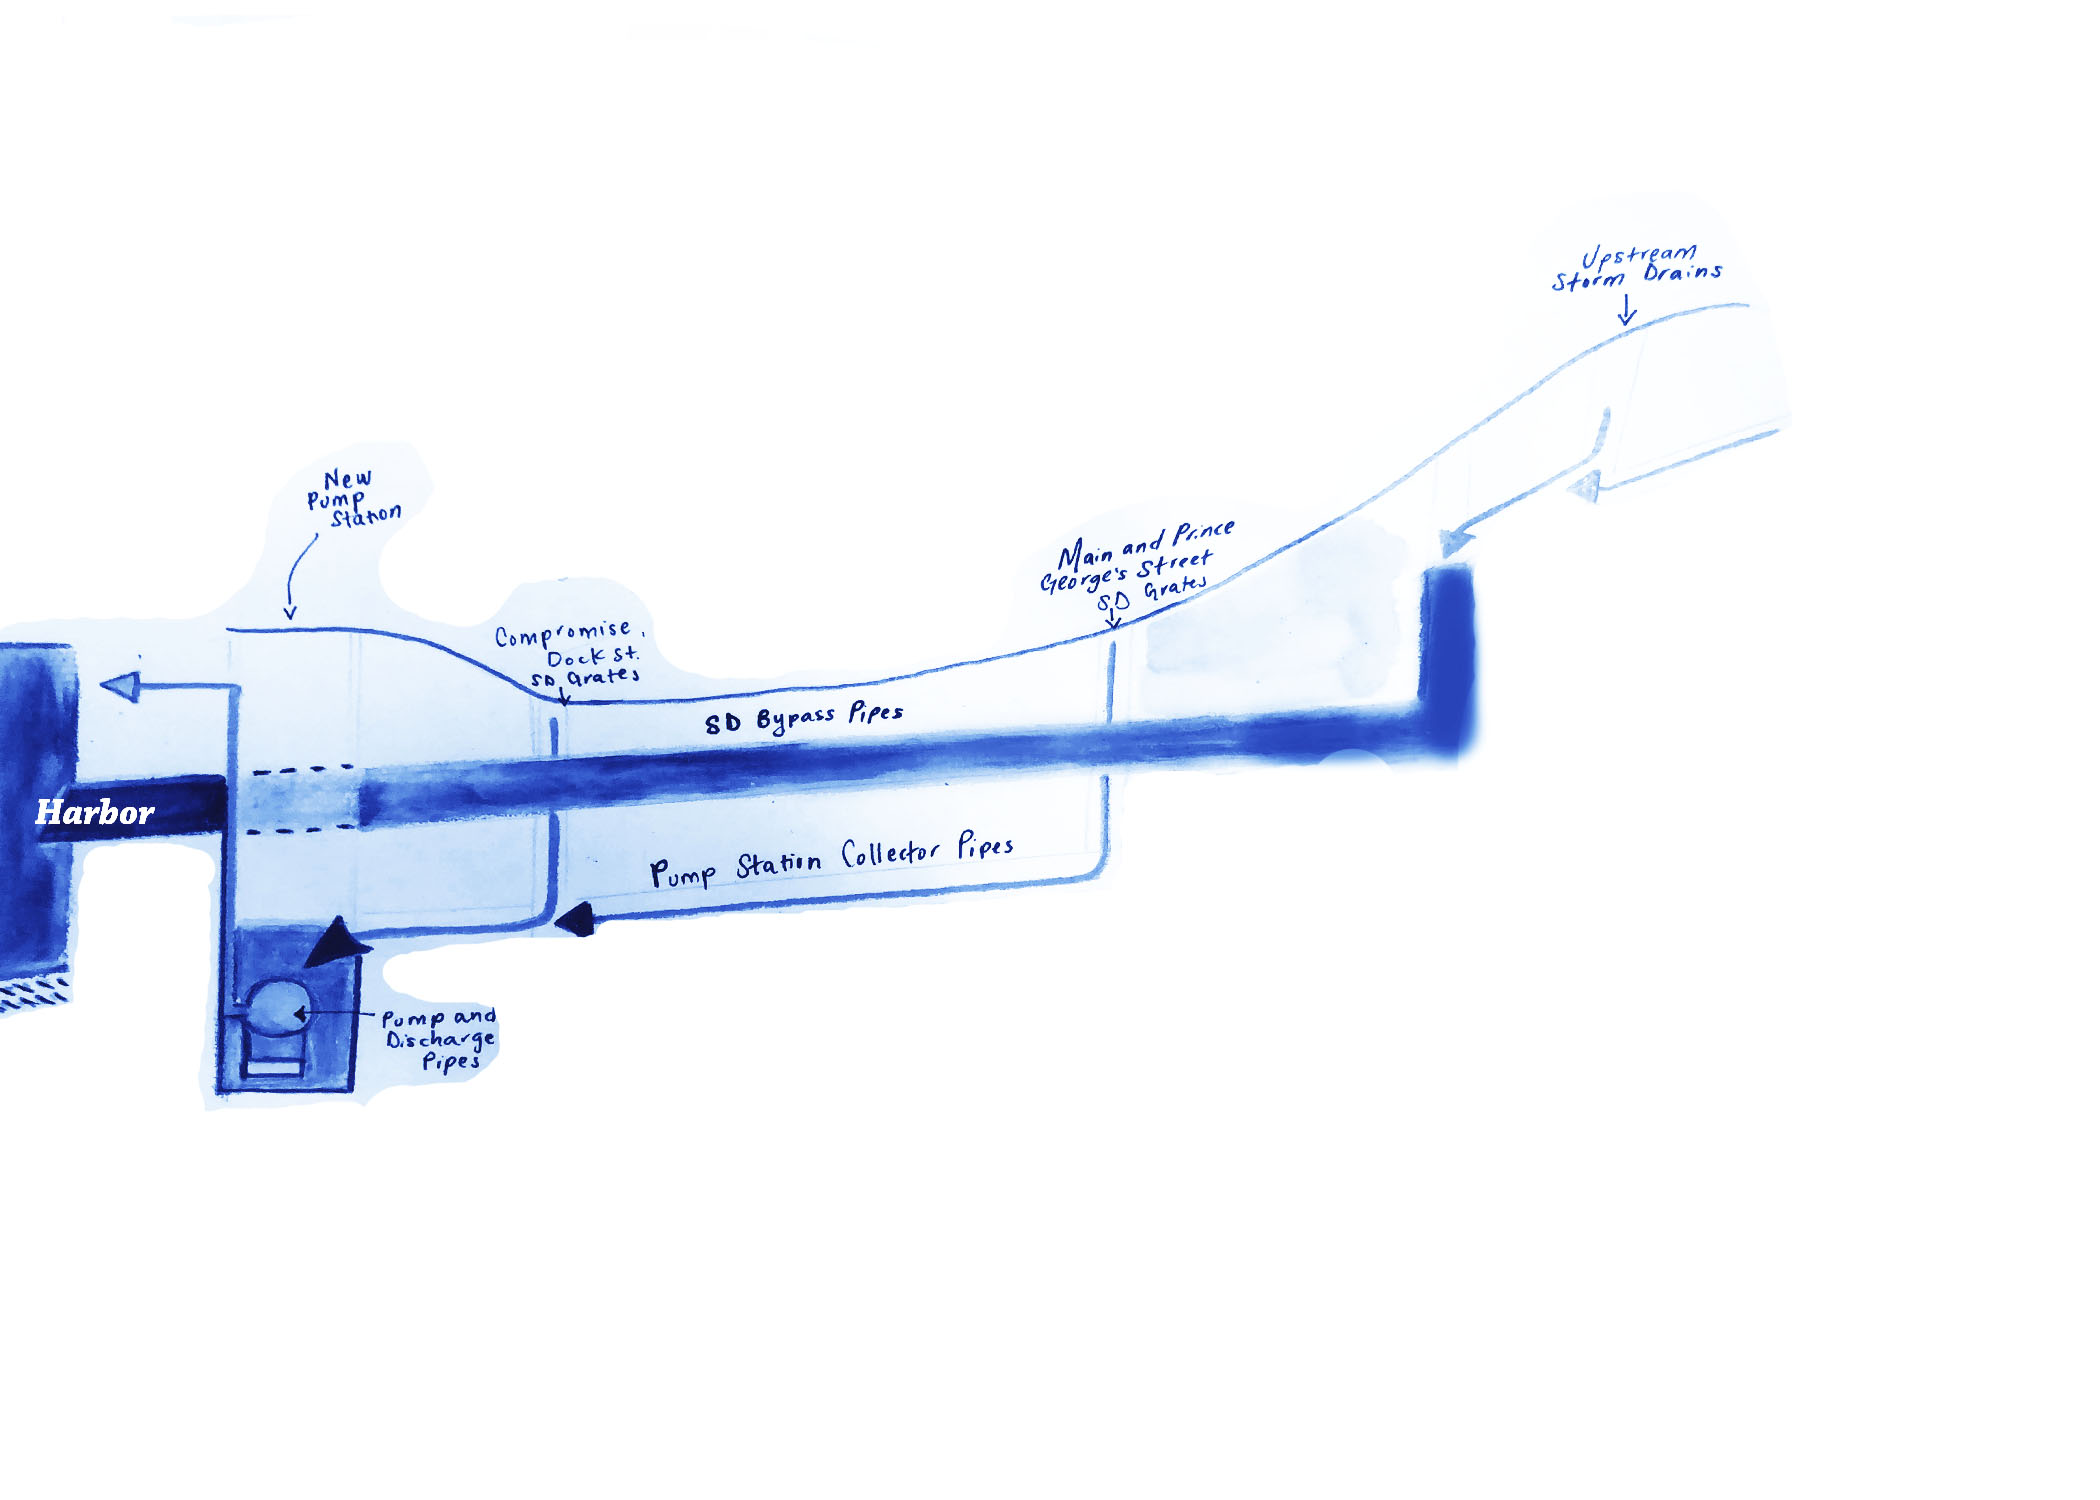 Upstream
Storm Drains
New
Pump
Station
Main and Prince
George's Street
SD Grates
Compromise,
Dock St.
SD Grates
SD Bypass Pipes
Harbor
Pump Station Collector Pipes
Pump and
Discharge
Pipes